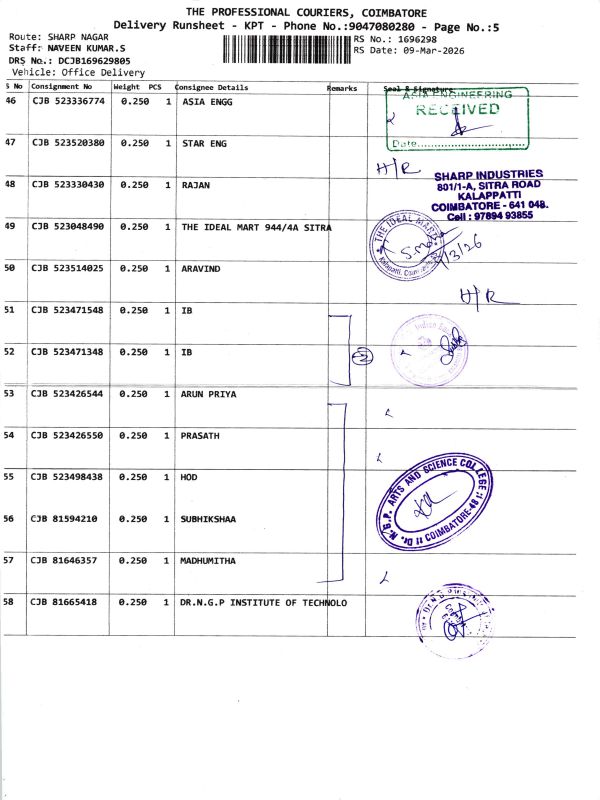 THE PROFESSIONAL COURIERS, COIMBATORE
Delivery Runsheet - KPT - Phone No.:9047080280 - Page No.:5
Route: SHARP NAGAR
RS No.: 1696298
Staff: NAVEEN KUMAR.S
RS Date: 09-Mar-2026
DRS No.: DCJB169629805
Vehicle: Office Delivery
S No Consignment No Weight PCS Consignee Details Remarks Seal & Signature
46 CJB 523336774 0.250 1 ASIA ENGG
ASIA ENGINEERING
RECEIVED
Date
47 CJB 523520380 0.250 1 STAR ENG
H/R
48 CJB 523330430 0.250 1 RAJAN
SHARP INDUSTRIES
801/1-A, SITRA ROAD
KALAPPATTI
COIMBATORE - 641 048.
Cell : 97894 93855
49 CJB 523048490 0.250 1 THE IDEAL MART 944/4A SITRA
THE IDEAL MART
Kalapatti, Coimbatore
/3/26
50 CJB 523514025 0.250 1 ARAVIND
H/R
51 CJB 523471548 0.250 1 IB
52 CJB 523471348 0.250 1 IB
53 CJB 523426544 0.250 1 ARUN PRIYA
54 CJB 523426550 0.250 1 PRASATH
55 CJB 523498438 0.250 1 HOD
N.G.P. ARTS AND SCIENCE COLLEGE
COIMBATORE-48
56 CJB 81594210 0.250 1 SUBHIKSHAA
57 CJB 81646357 0.250 1 MADHUMITHA
58 CJB 81665418 0.250 1 DR.N.G.P INSTITUTE OF TECHNOLO